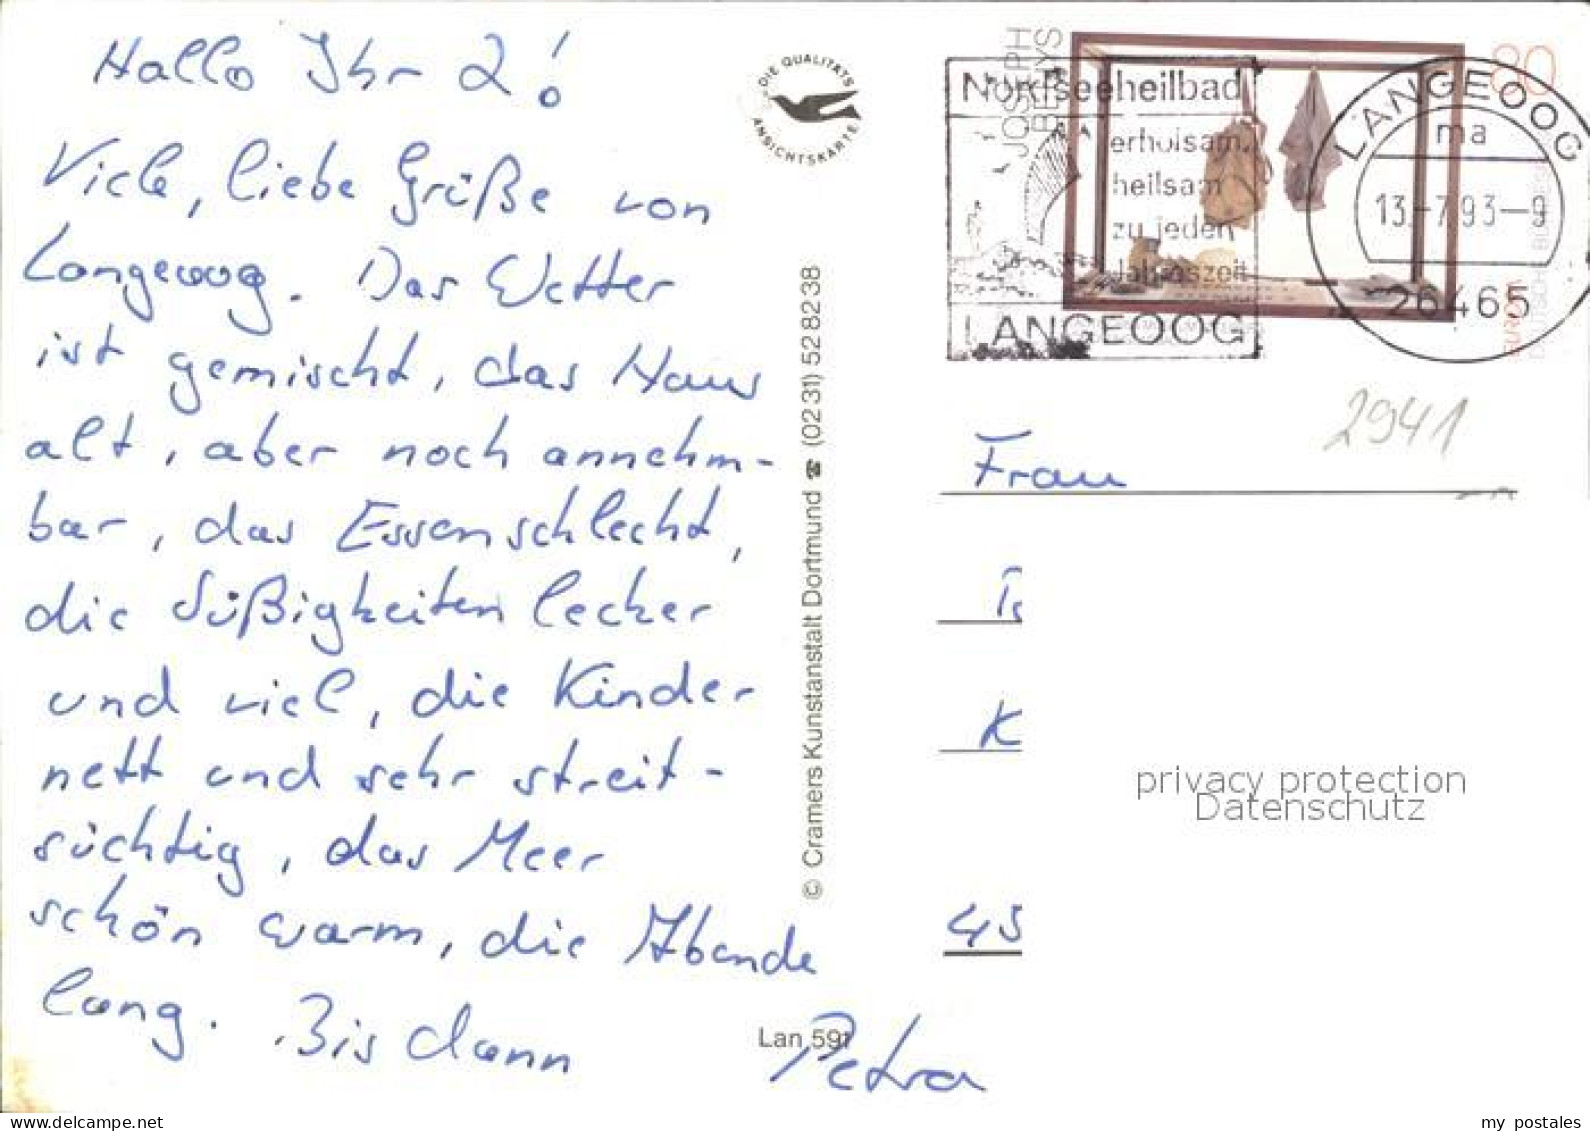 Hallo Ihr 2!
Viele, liebe Grüße von
Langeoog. Das Wetter
ist gemischt, das Haus
alt, aber noch annehm-
bar, das Essen schlecht,
die Süßigkeiten lecker
und viel, die Kinder
nett und sehr streit-
süchtig, das Meer
schön warm, die Abende
lang. Bis dann
Petra
DIE QUALITÄTS
ANSICHTSKARTE
© Cramers Kunstanstalt Dortmund ☎ (0231) 528238
Lan 591
Nordseeheilbad
erholsam,
heilsam
zu jeder
Jahreszeit
LANGEOOG
JOSEPH
BEUYS
80
LANGEOOG
ma
13.-7.93-9
26465
DEUTSCHE BUNDESPOST
EUROPA
2941
Frau
K
45
privacy protection
Datenschutz
my postales